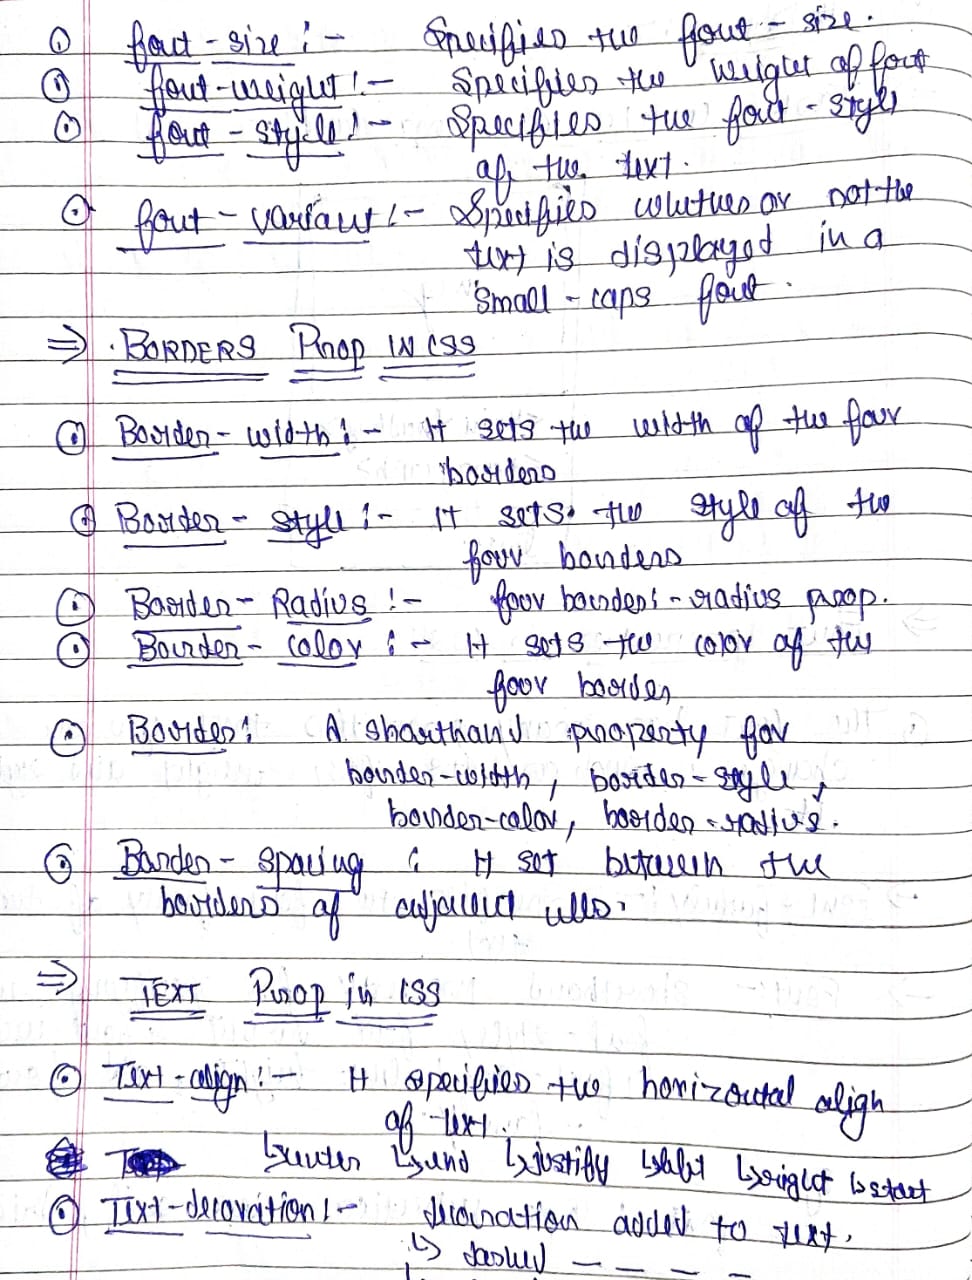 font-size :- Specifies the font-size.
font-weight :- Specifies the weight of font
font-style :- Specifies the font-style
of the text.
font-variant :- Specifies whether or not the
text is displayed in a
small-caps font.
⇒ BORDERS Prop IN CSS
Border-width :- It sets the width of the four
borders
Border-style :- It sets the style of the
four borders
Border-Radius :- four borders-radius prop.
Border-color :- It sets the color of the
four border
Border: A shorthand property for
border-width, border-style,
border-color, border-radius.
Border-spacing : It set between the
borders of adjacent cells.
⇒ TEXT Prop in CSS
Text-align :- It specifies the horizontal align
of text.
↳center ↳end ↳justify ↳left ↳right ↳start
Text-decoration :- decoration added to text.
↳ dashed - - - -